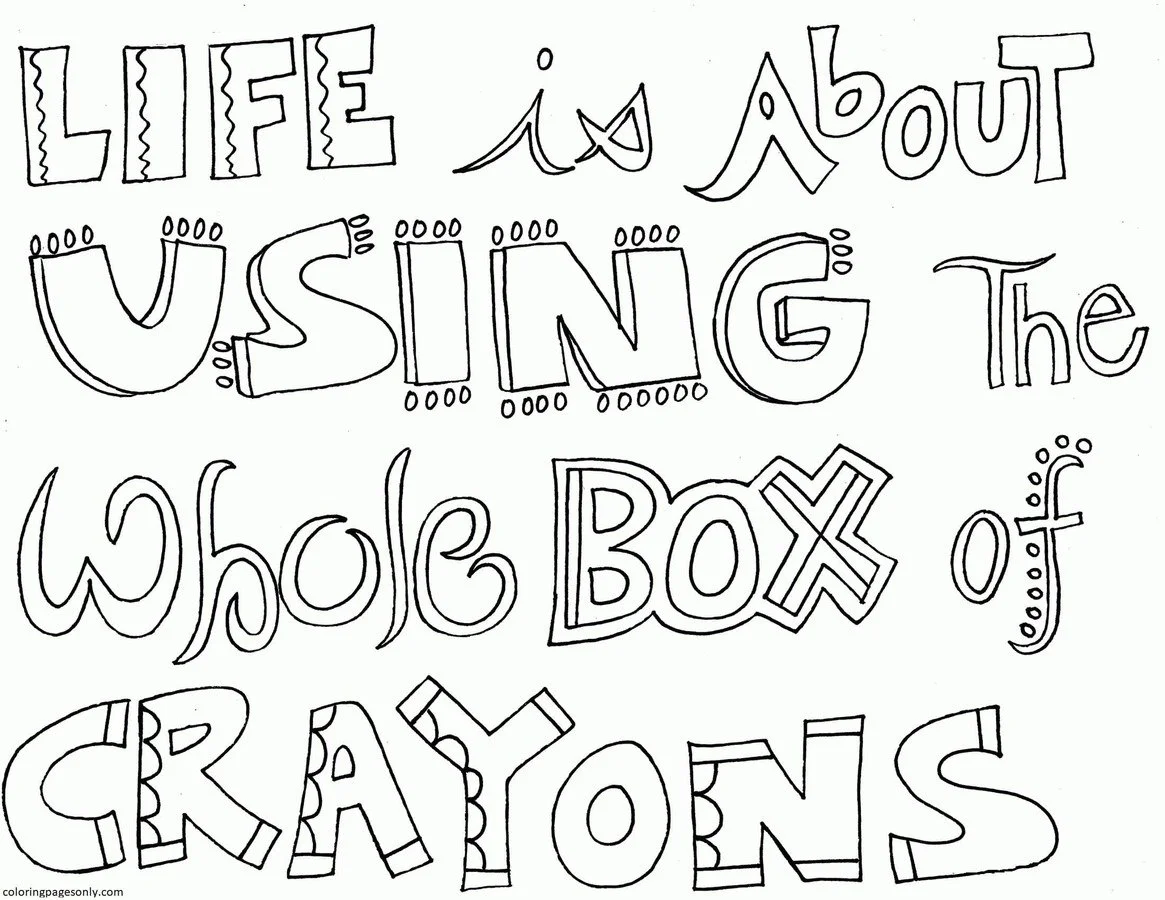 LIFE is AboUT
USING The
Whole BOX of
CRAYONS
coloringpagesonly.com